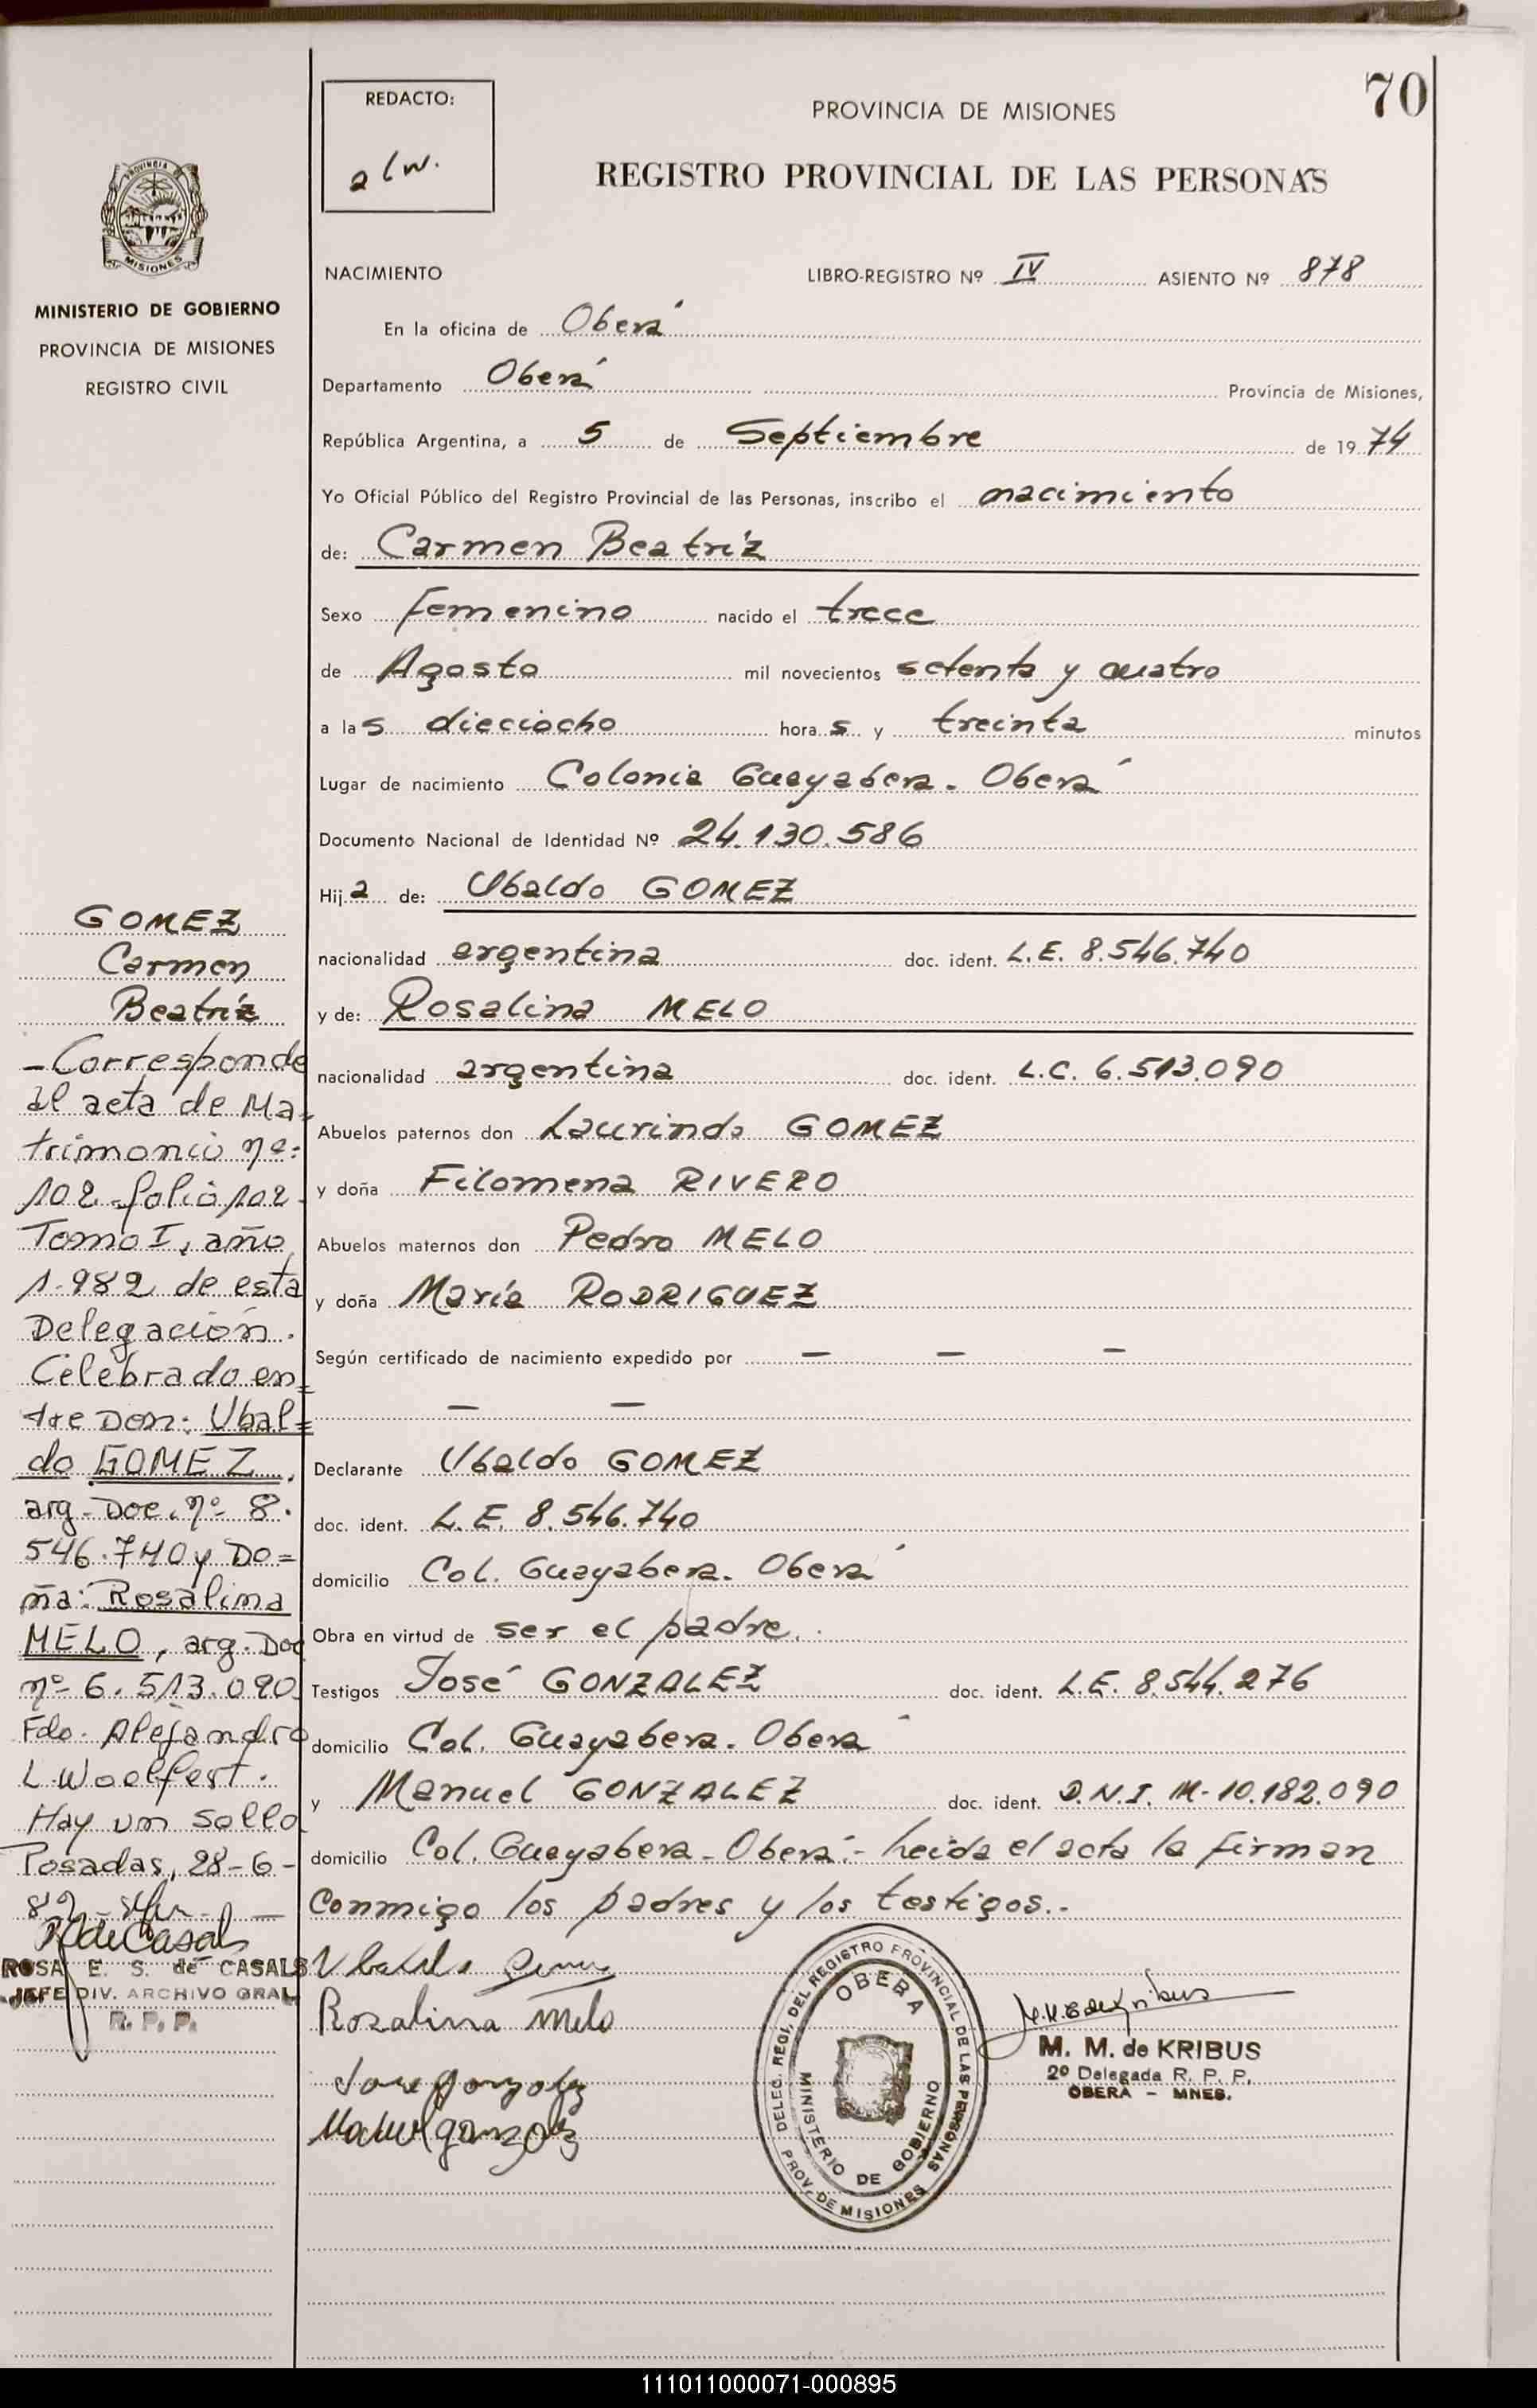 70
REDACTO:
alw.
PROVINCIA DE MISIONES
REGISTRO PROVINCIAL DE LAS PERSONAS
PROVINCIA DE
MISIONES
MINISTERIO DE GOBIERNO
PROVINCIA DE MISIONES
REGISTRO CIVIL
NACIMIENTO LIBRO-REGISTRO Nº IV ASIENTO Nº 878
En la oficina de Oberá
Departamento Oberá Provincia de Misiones,
República Argentina, a 5 de Septiembre de 1974
Yo Oficial Público del Registro Provincial de las Personas, inscribo el nacimiento
de: Carmen Beatríz
Sexo femenino nacido el trece
de Agosto mil novecientos setenta y cuatro
a las dieciocho horas y treinta minutos
Lugar de nacimiento Colonia Guayabera. Oberá
Documento Nacional de Identidad Nº 24.130.586
Hija de: Ubaldo GOMEZ
nacionalidad argentina doc. ident. L.E. 8.546.740
y de: Rosalina MELO
nacionalidad argentina doc. ident. L.C. 6.513.090
Abuelos paternos don Laurindo GOMEZ
y doña Filomena RIVERO
Abuelos maternos don Pedro MELO
y doña María RODRIGUEZ
Según certificado de nacimiento expedido por — — —
— —
Declarante Ubaldo GOMEZ
doc. ident. L.E. 8.546.740
domicilio Col. Guayabera. Oberá
Obra en virtud de ser el padre.
Testigos José GONZALEZ doc. ident. L.E. 8.544.276
domicilio Col. Guayabera. Oberá
y Manuel GONZALEZ doc. ident. D.N.I. M-10.182.090
domicilio Col. Guayabera - Oberá.- Leida el acta la firman
conmigo los padres y los testigos.-
Ubaldo
Rosalina Melo
Jose gonzalez
Manuel gonzalez
DELEG. REGI. DEL REGISTRO PROVINCIAL DE LAS PERSONAS
PROV. DE MISIONES
OBERA
MINISTERIO DE GOBIERNO
M. M. de KRIBUS
2º Delegada R. P. P.
OBERA - MNES.
GOMEZ
Carmen
Beatríz
-Corresponde
al acta de Ma=
trimonio nº:
102 folio 102
Tomo I, año
1.982 de esta
Delegación.
Celebrado en=
tre Don: Ubal=
do GOMEZ,
arg. Doc. nº 8.
546.740 y Do=
ña: Rosalina
MELO, arg. Doc
nº 6.513.090
Fdo. Alejandro
L. Woelfert.
Hay un sello
Posadas, 28-6-
82
R de Casals
ROSA E. S. de CASALS
JEFE DIV. ARCHIVO GRAL
R. P. P.
111011000071-000895